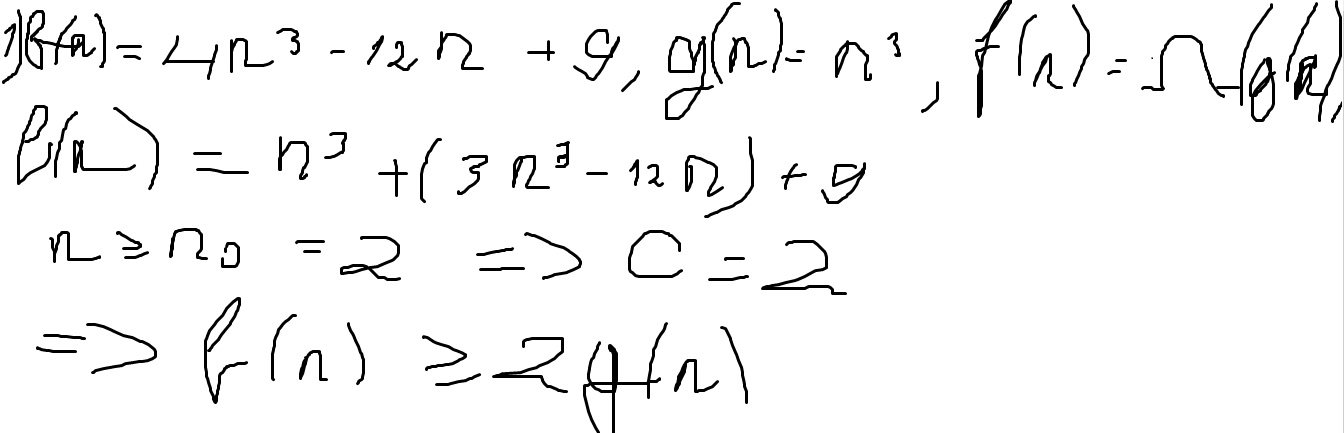 1) f(n) = 4n³ - 12n + 9, g(n) = n³, f(n) = Ω(g(n))
f(n) = n³ + (3n³ - 12n) + 9
n ≥ n₀ = 2 => C = 2
=> f(n) ≥ 2g(n)